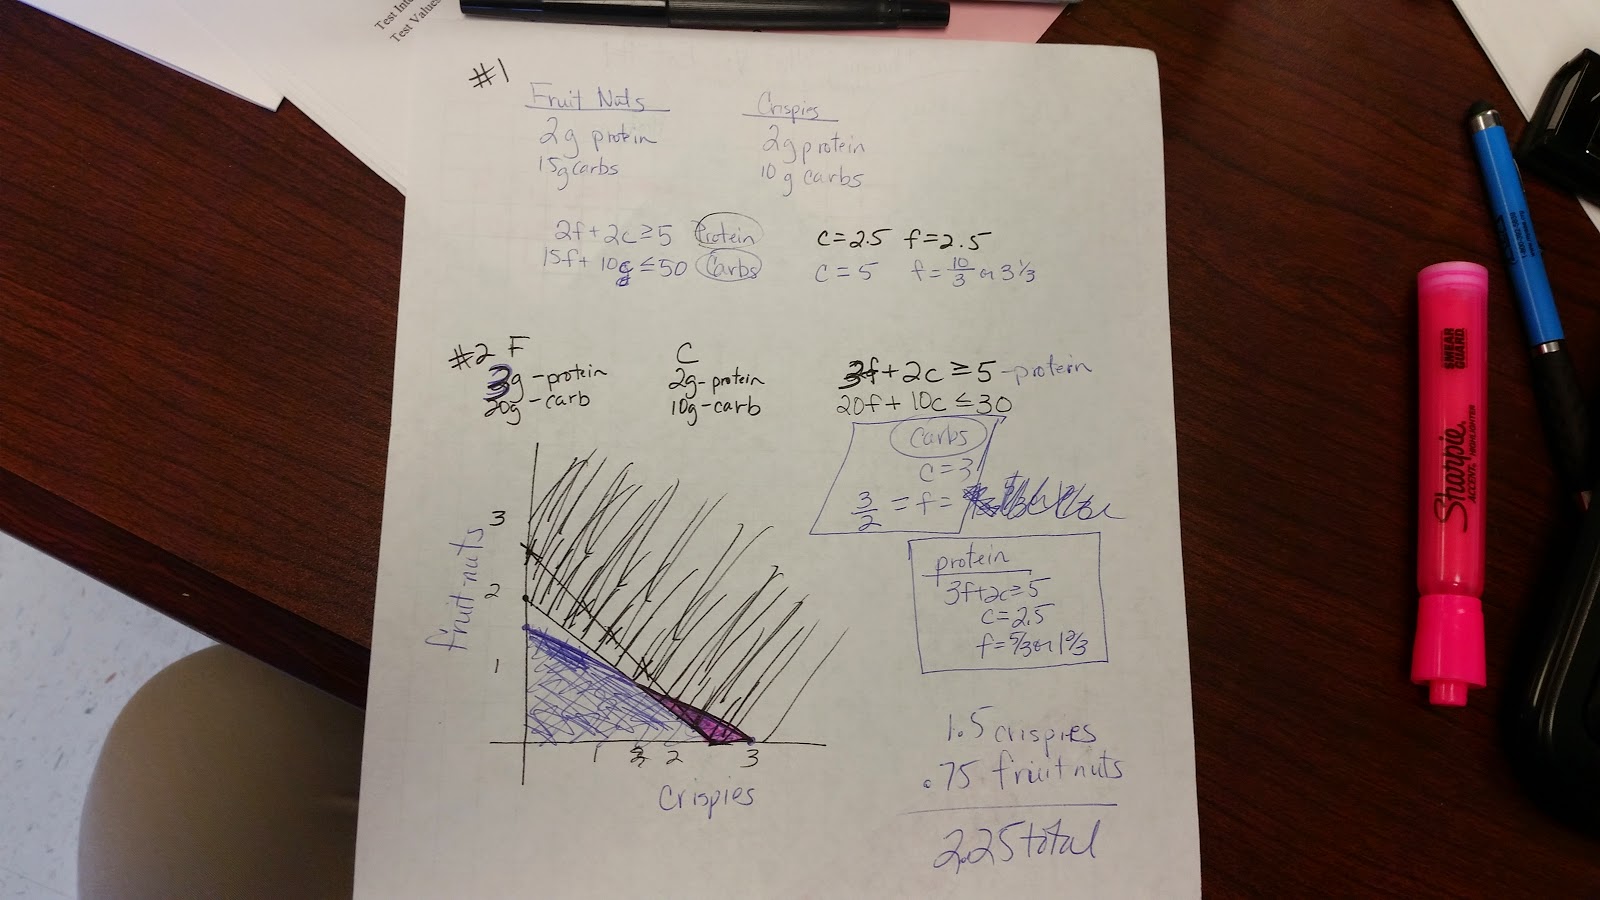 Test Values
#1
Fruit Nuts
2g protein
15g carbs
Crispies
2g protein
10 g carbs
2f+2c≥5 Protein
15f+10c≤50 Carbs
c=2.5 f=2.5
c=5 f=10/3 or 3 1/3
#2 F
3g-protein
20g-carb
C
2g-protein
10g-carb
3f+2c≥5-protein
20f+10c≤30
Carbs
c=3
3/2=f=
protein
3f+2c≥5
c=2.5
f=5/3 or 1 2/3
3
2
1
fruit nuts
1 2 3
Crispies
1.5 crispies
.75 friutnuts
2.25 total
SMEAR GUARD
Sharpie
ACCENT HIGHLIGHTER